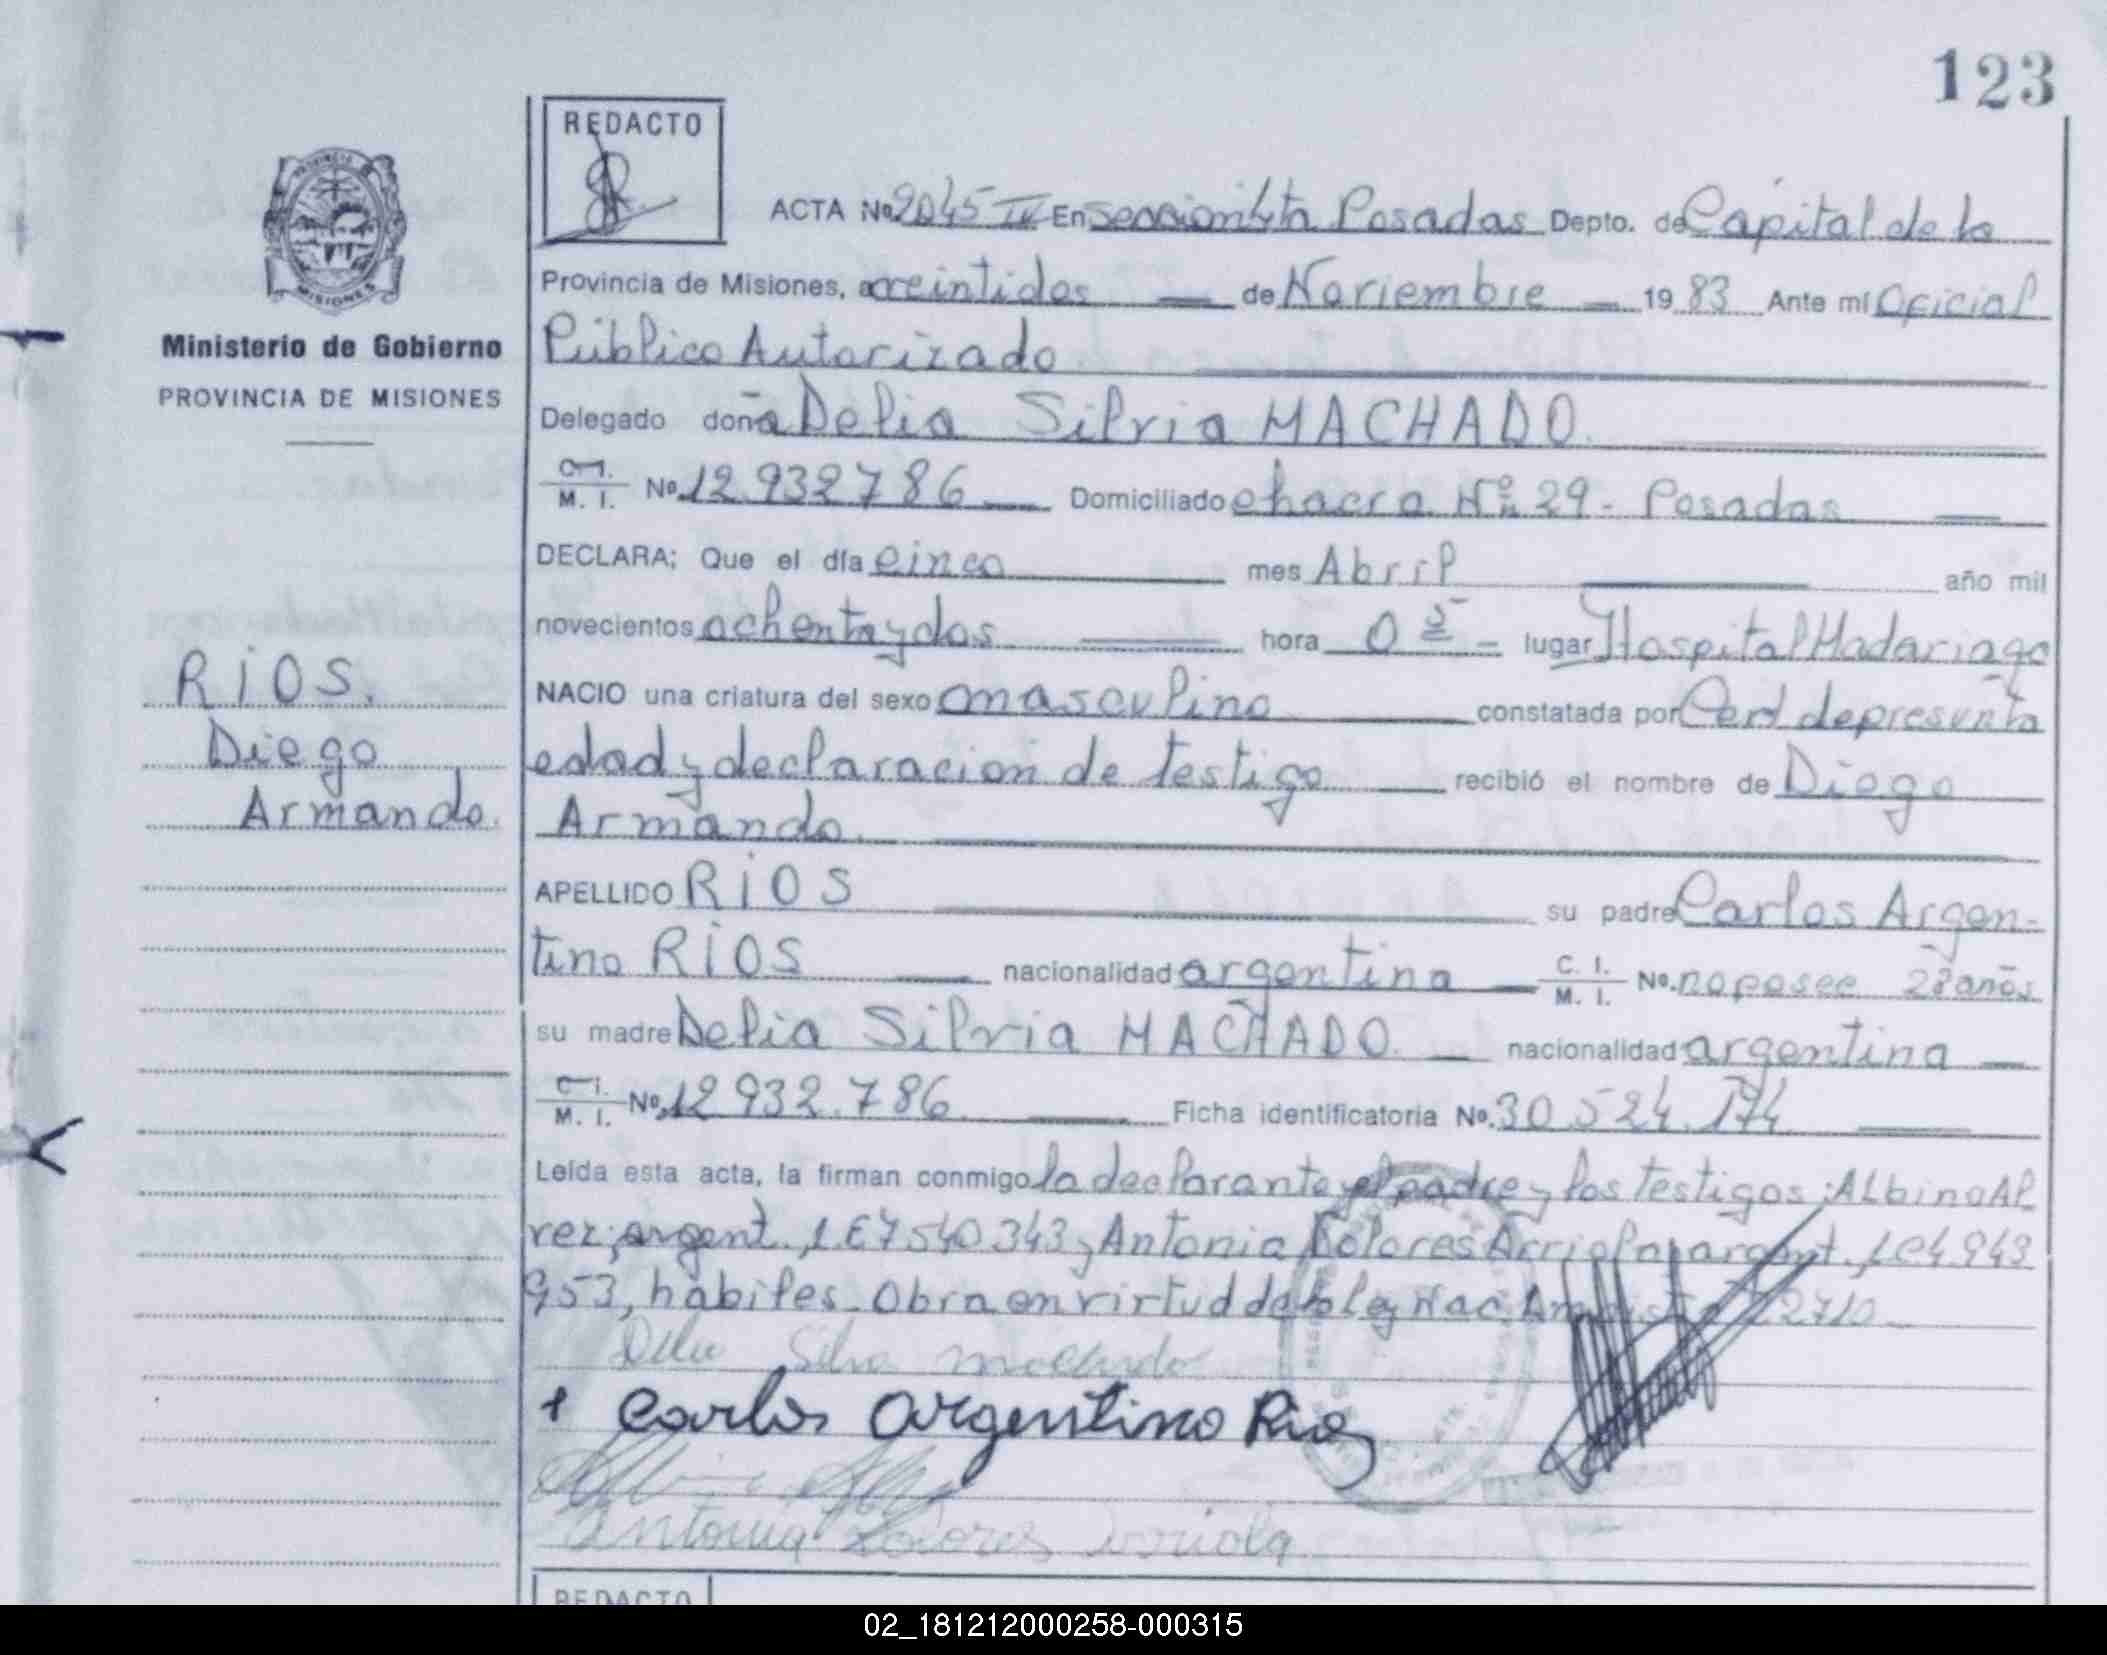 123
REDACTO
PROVINCIA
MISIONES
Ministerio de Gobierno
PROVINCIA DE MISIONES
ACTA Nº 2045 IV En seccion 4ta Posadas Depto. de Capital de la
Provincia de Misiones, a veintidos de Noviembre 1983 Ante mí Oficial
Público Autorizado
Delegado doña Delia Silvia MACHADO.
C. I. / M. I. Nº 12.932786 Domiciliado chacra Nº 29 - Posadas
DECLARA; Que el día cinco mes Abril año mil
novecientos ochenta y dos hora 0 5 - lugar Hospital Madariaga
NACIO una criatura del sexo masculino constatada por Cert de presunta
edad y declaracion de testigo recibió el nombre de Diego
Armando.
RIOS.
Diego
Armando.
APELLIDO RIOS su padre Carlos Argen-
tino RIOS nacionalidad argentina C. I. / M. I. No. no posee 28 años
su madre Delia Silvia MACHADO. nacionalidad argentina
C. I. / M. I. Nº 12 932.786 Ficha identificatoria Nº. 30.524.174
Leída esta acta, la firman conmigo la declarante y el padre y los testigos: Albino Al
vez, argent. LE 7540343 y Antonia Dolores Arriola, argent. LC 4.943
953, habiles. Obra en virtud de la ley Nac. Amnistia 22710
Delia Silvia Machado
+ Carlos Argentino Rios
Antonia Dolores Arriola
REDACTO
02_181212000258-000315